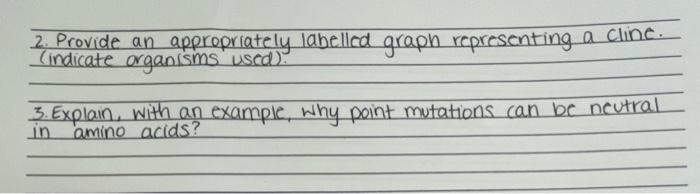 2. Provide an appropriately labelled graph representing a cline.
(indicate organisms used).
3. Explain, with an example, why point mutations can be neutral
in amino acids?